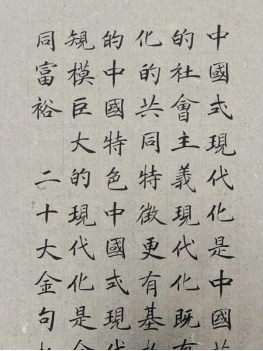 中國式現代化是中國
的社會主義現代化既有
化的共同特徵更有基
的中國特色中國式現
規模巨大的現代化是
同富裕 二十大金句